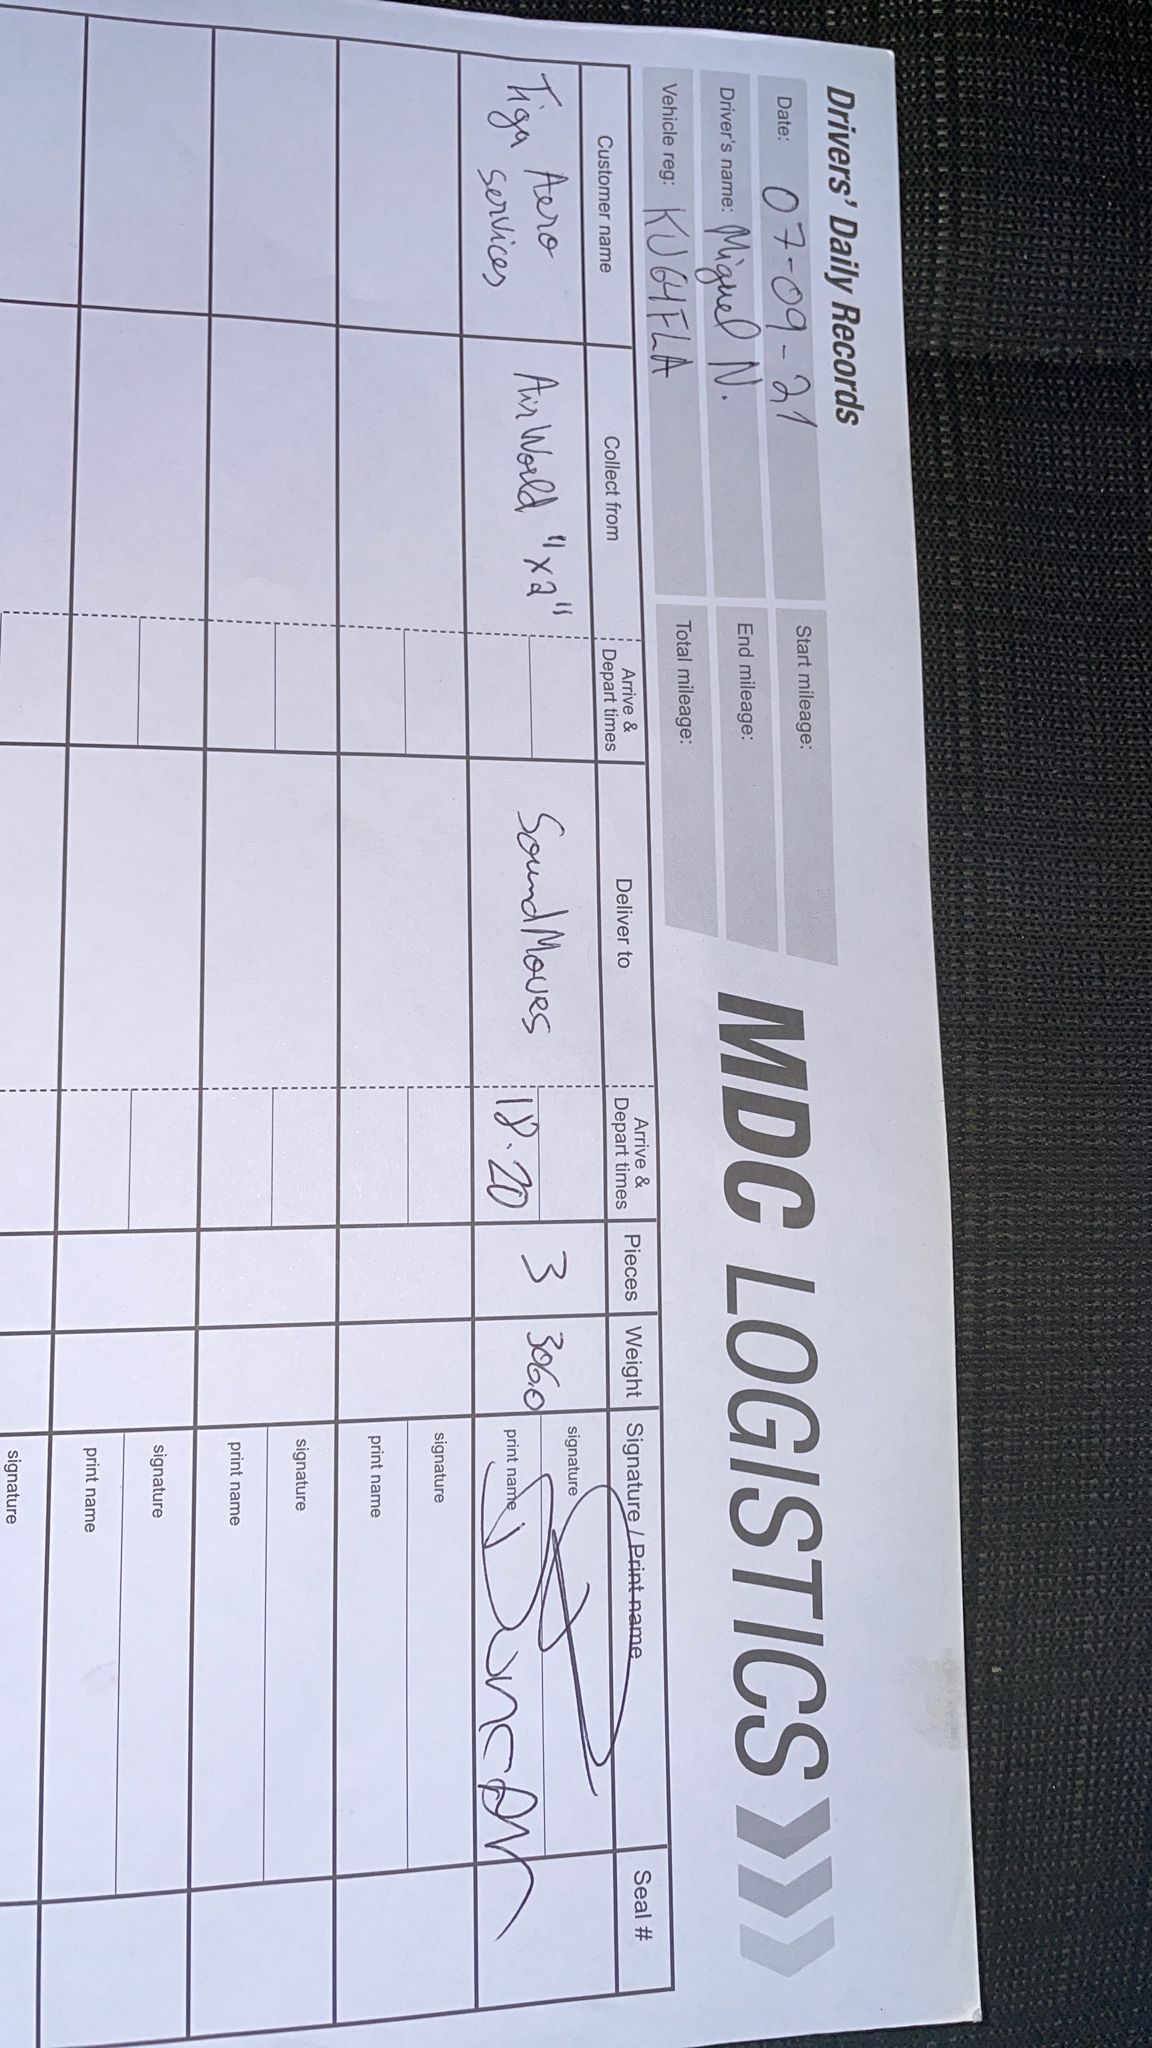 Drivers' Daily Records
MDC LOGISTICS
Date: 07-09-21
Start mileage:
Driver's name: Miguel N.
End mileage:
Vehicle reg: KU64FLA
Total mileage:
Customer name
Collect from
Arrive &
Depart times
Deliver to
Arrive &
Depart times
Pieces
Weight
Signature / Print name
Seal #
Tiga Aero
services
AirWorld "x2"
SoundMoves
18.20
3
306,0
signature
print name Duncan
signature
print name
signature
print name
signature
print name
signature